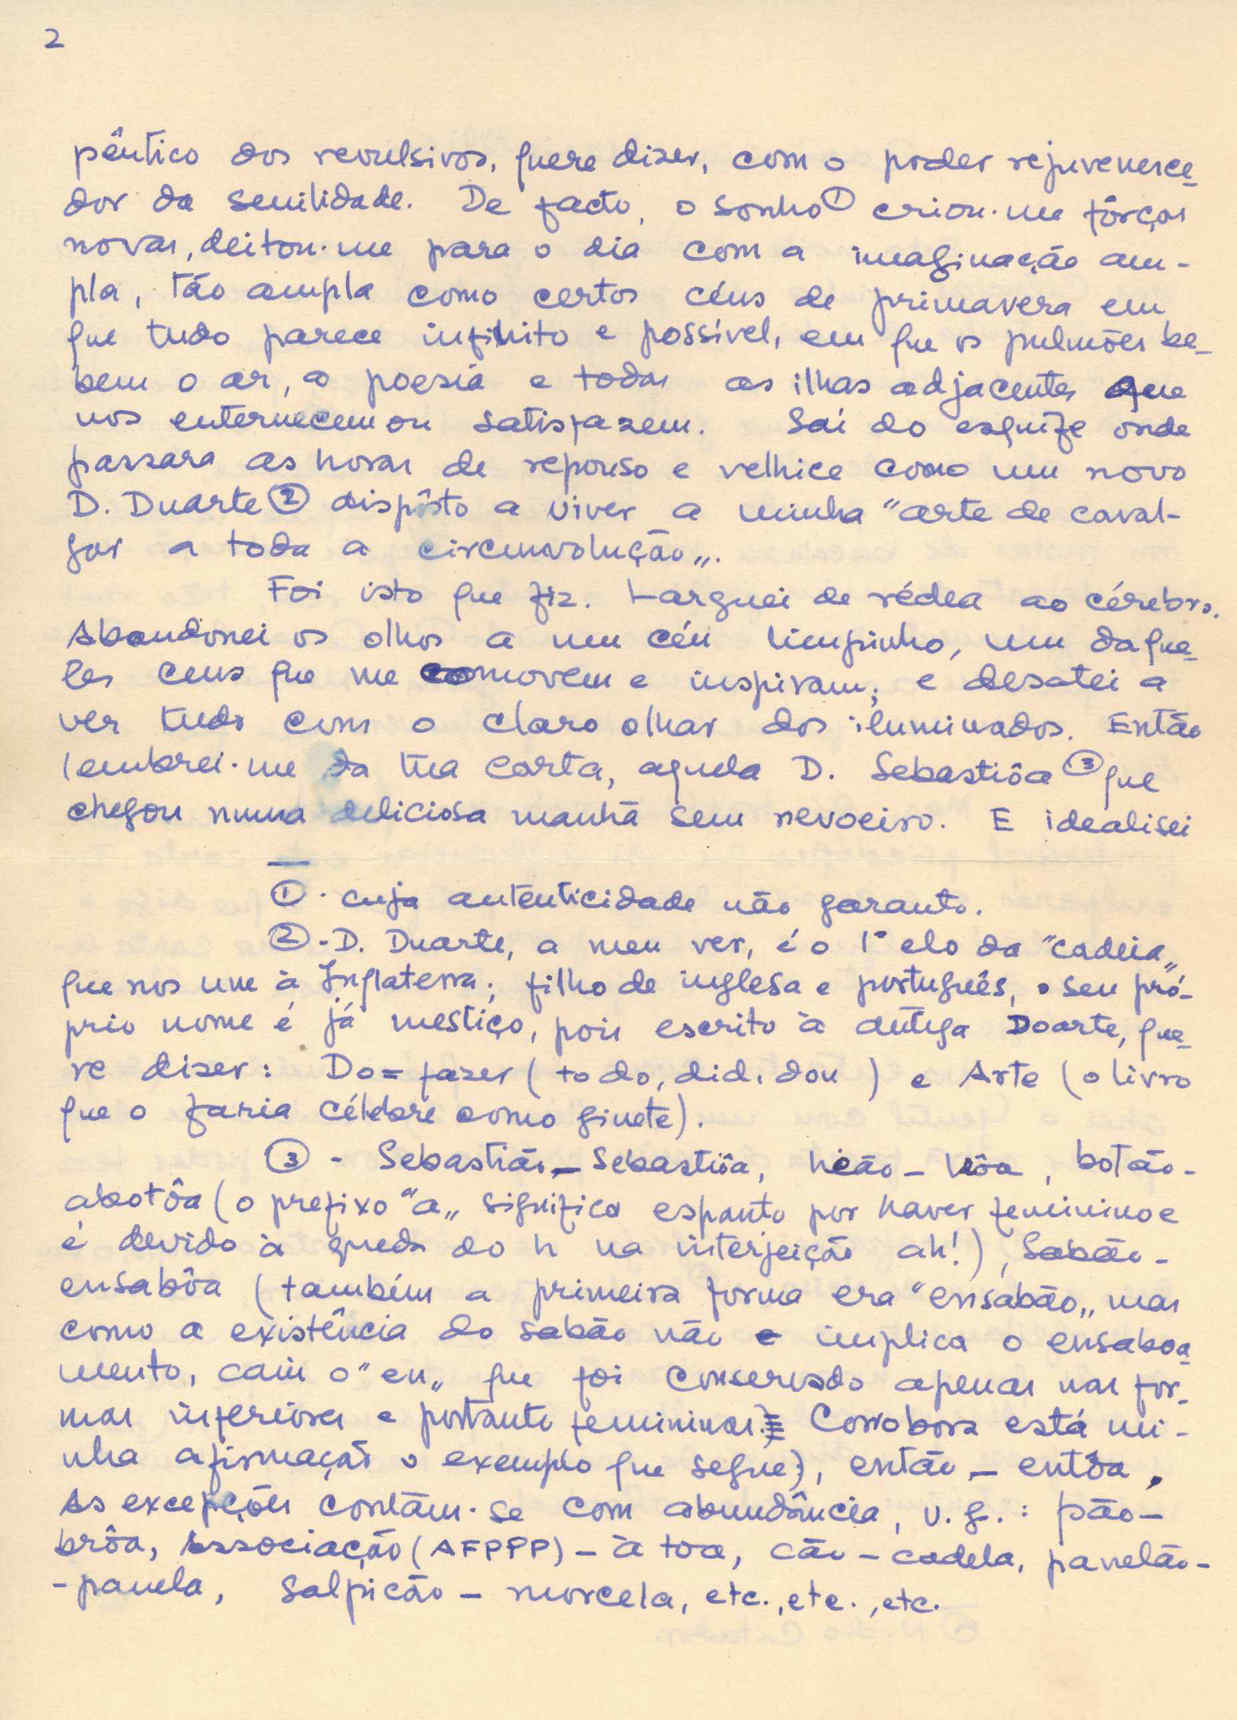 2
pêutico dos revulsivos, quere dizer, com o poder rejuvenesce-
dor da senilidade. De facto, o sonho ① criou-me fôrças
novas, deitou-me para o dia com a imaginação am-
pla, tão ampla como certos céus de primavera em
que tudo parece infinito e possível, em que os pulmões be-
bem o ar, a poesia e todas as ilhas adjacentes que
nos enternecem ou satisfazem. Saí do esquife onde
passara as horas de repouso e velhice como um novo
D. Duarte ② dispôsto a viver a minha "arte de caval-
gar a toda a circumvolução„.
Foi isto que fiz. Larguei de rédea ao cérebro.
Abandonei os olhos a um céu limpinho, um daque-
les ceus que me comovem e inspiram; e desatei a
ver tudo com o claro olhar dos iluminados. Então
lembrei-me da tua carta, aquela D. Sebastiôa ③ que
chegou numa deliciosa manhã sem nevoeiro. E idealisei
① - cuja autenticidade não garanto.
② - D. Duarte, a meu ver, é o 1º elo da "cadeia„
que nos une à Inglaterra; filho de inglesa e português, o seu pró-
prio nome é já mestiço, pois escrito à antiga Doarte, que-
re dizer: Do = fazer (to do, did, don) e Arte (o livro
que o faria célebre como ginete).
③ - Sebastião - Sebastiôa, leão - lêôa, botão -
abotôa (o prefixo "a„ significa espanto por haver feminino e
é devido à queda do h na interjeição ah!), Sabão -
ensabôa (também a primeira forma era "ensabão„ mas
como a existência do sabão não implica o ensaboa-
mento, caiu o "en„ que foi conservado apenas nas for-
mas inferiores e portanto femininas. Corrobora está mi-
nha afirmação o exemplo que segue), então - entôa.
As excepções contam-se com abundância, v.g.: pão -
brôa, Associação (AFPPP) - à toa, cão - cadela, panelão -
- panela, salpicão - morcela, etc., etc., etc.